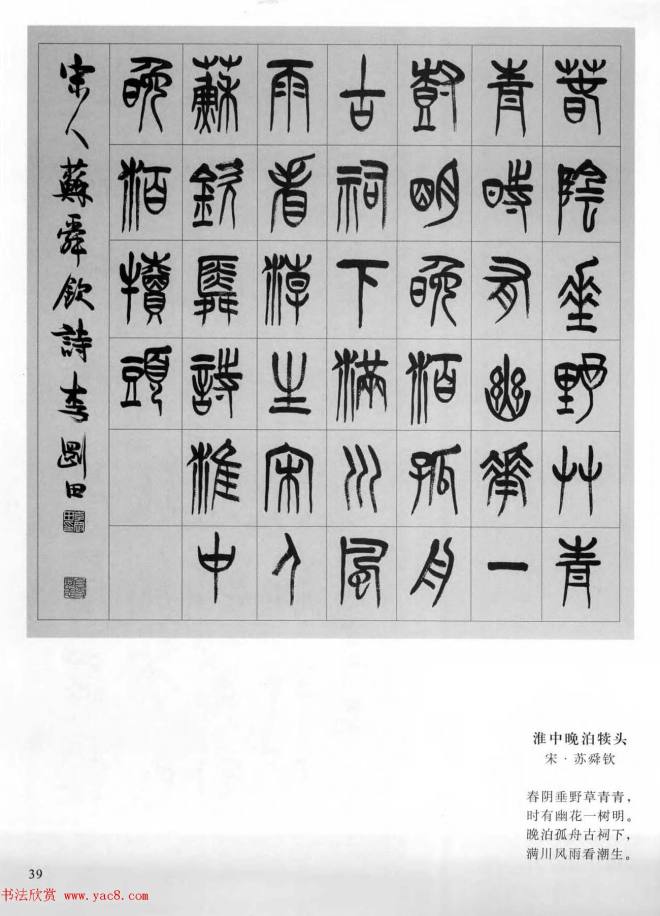 萅陰𠂹野艸青
青時有幽華一
𣗳明晚洦孤舟
古祠下滿川風
雨看淖生宋人
蘇欽舜詩淮中
晚洦犢頭
宋人蘇舜欽詩李剛田
淮中晚泊犊头
宋·苏舜钦
春阴垂野草青青，
时有幽花一树明。
晚泊孤舟古祠下，
满川风雨看潮生。
39
书法欣赏 www.yac8.com